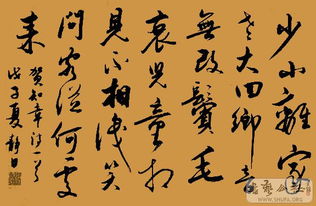 少小離家
老大回鄉音
無改鬢毛
衰兒童相
見不相識笑
問客從何處
來
賀知章詩一首
戊子夏
WWW.SHUFA.ORG